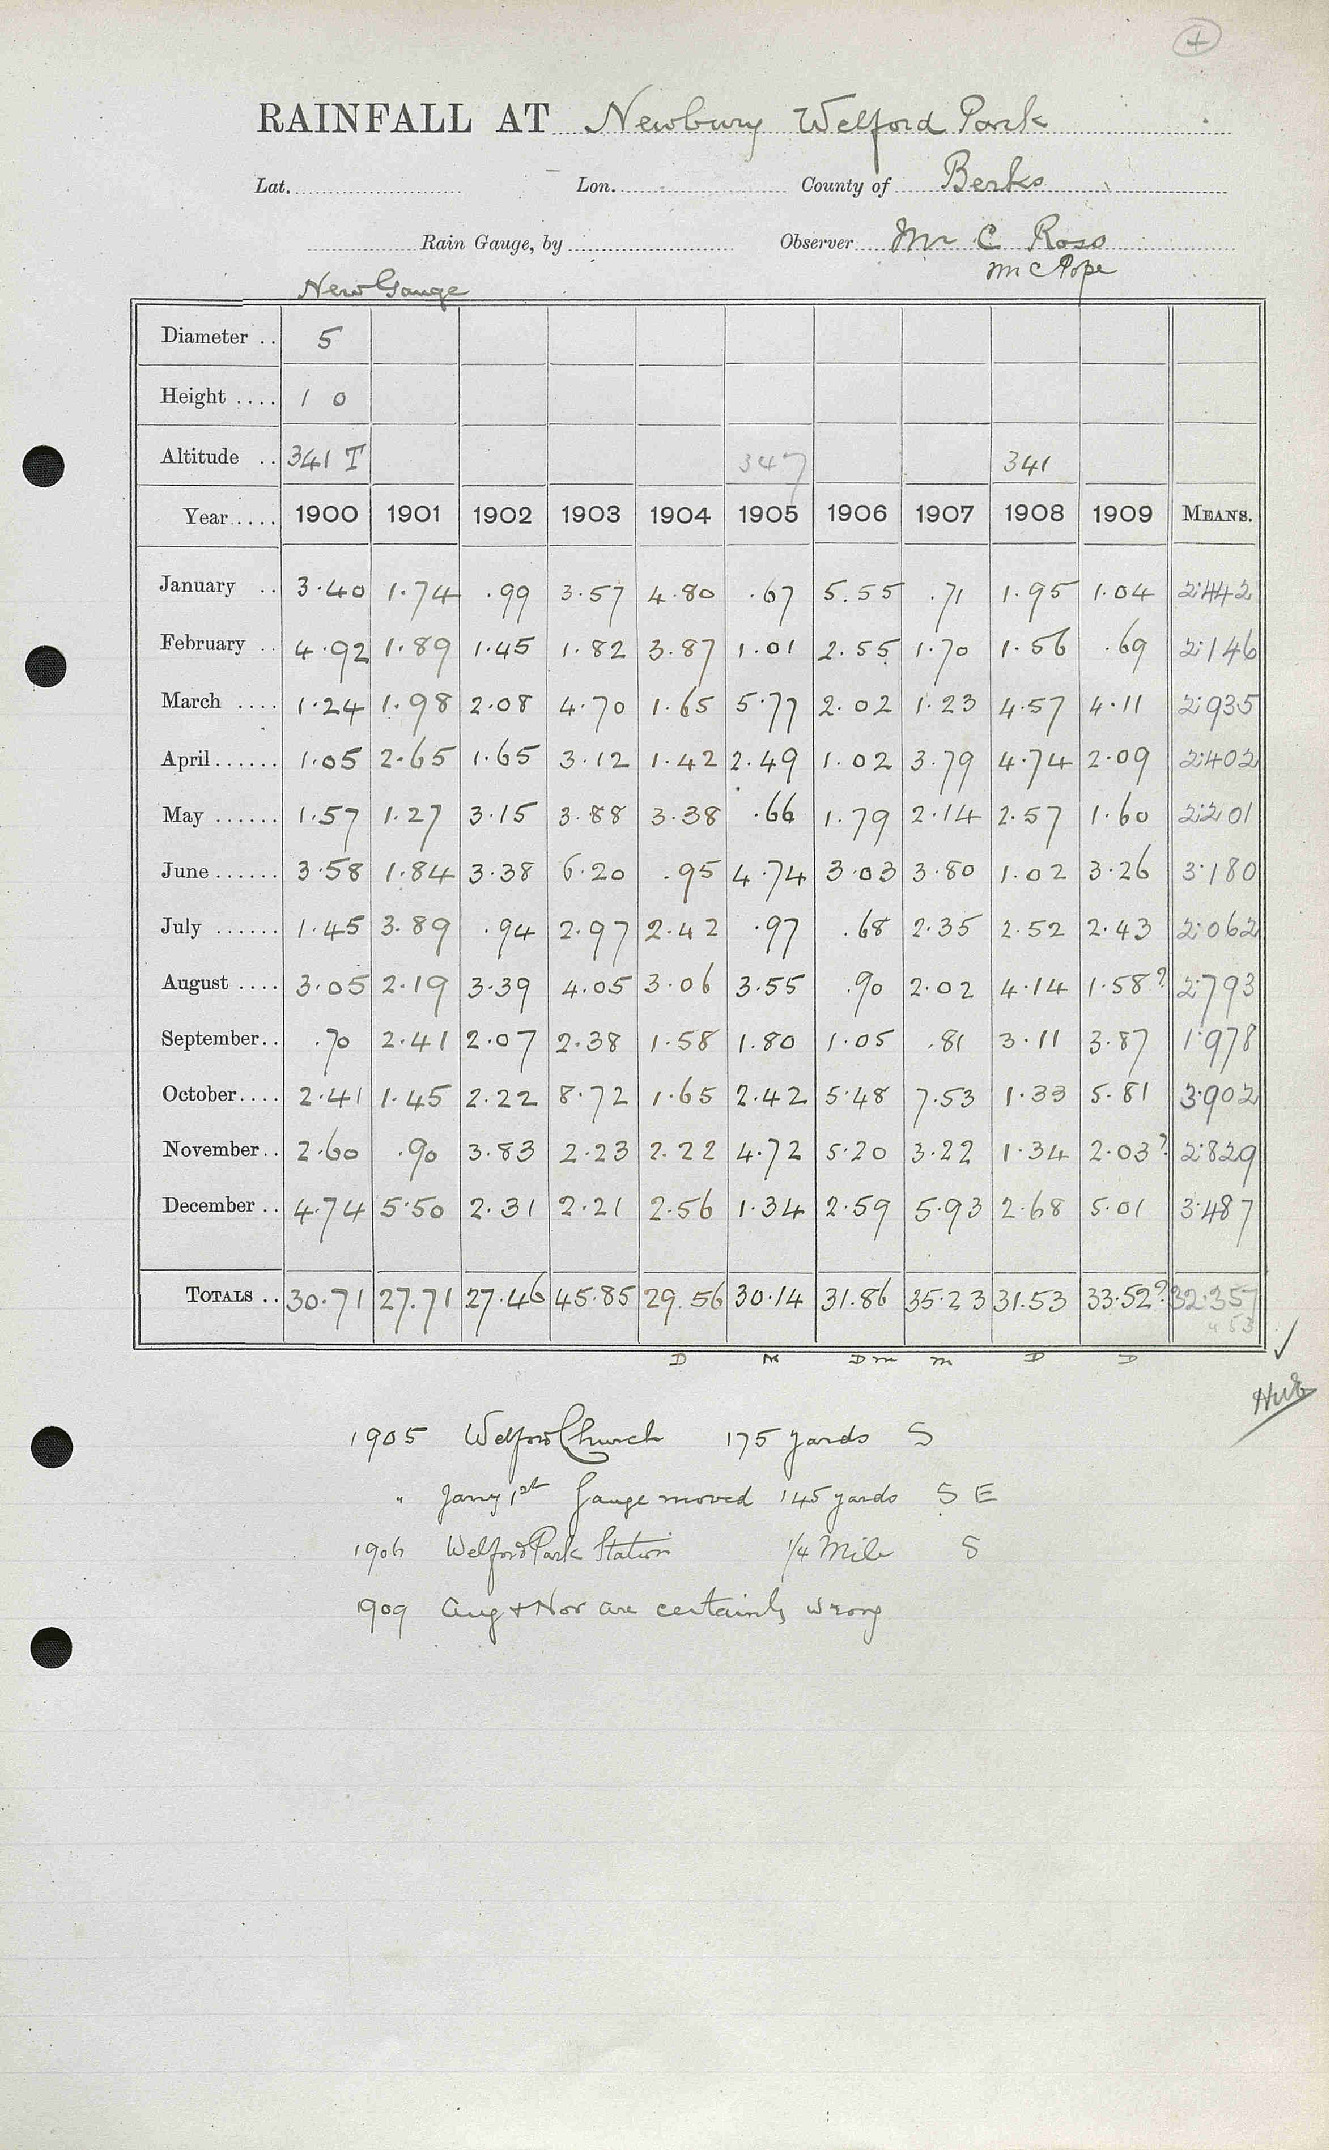 +
RAINFALL AT Newbury Welford Park
Lat. Lon. County of Berks
Rain Gauge, by Observer Mr C Ross
Mr C Pope
New Gauge
Diameter .. 5
Height .... 1 0
Altitude .. 341 T 347 341
Year..... 1900 1901 1902 1903 1904 1905 1906 1907 1908 1909 MEANS.
January .. 3.40 1.74 .99 3.57 4.80 .67 5.55 .71 1.95 1.04 2.442
February .. 4.92 1.89 1.45 1.82 3.87 1.01 2.55 1.70 1.56 .69 2.146
March .... 1.24 1.98 2.08 4.70 1.65 5.77 2.02 1.23 4.57 4.11 2.935
April...... 1.05 2.65 1.65 3.12 1.42 2.49 1.02 3.79 4.74 2.09 2.402
May ...... 1.57 1.27 3.15 3.88 3.38 .66 1.79 2.14 2.57 1.60 2.201
June...... 3.58 1.84 3.38 6.20 .95 4.74 3.03 3.80 1.02 3.26 3.180
July ...... 1.45 3.89 .94 2.97 2.42 .97 .68 2.35 2.52 2.43 2.062
August .... 3.05 2.19 3.39 4.05 3.06 3.55 .90 2.02 4.14 1.58? 2.793
September.. .70 2.41 2.07 2.38 1.58 1.80 1.05 .81 3.11 3.87 1.978
October.... 2.41 1.45 2.22 8.72 1.65 2.42 5.48 7.53 1.33 5.81 3.902
November.. 2.60 .90 3.83 2.23 2.22 4.72 5.20 3.22 1.34 2.03? 2.829
December .. 4.74 5.50 2.31 2.21 2.56 1.34 2.59 5.93 2.68 5.01 3.487
TOTALS .. 30.71 27.71 27.46 45.85 29.56 30.14 31.86 35.23 31.53 33.52? 32.357
D M D m m D D
1905 Welford Church 175 yards S
" Jany 1st Gauge moved 145 yards S E
1906 Welford Park Station 1/4 Mile S
1909 Aug + Nov are certainly wrong